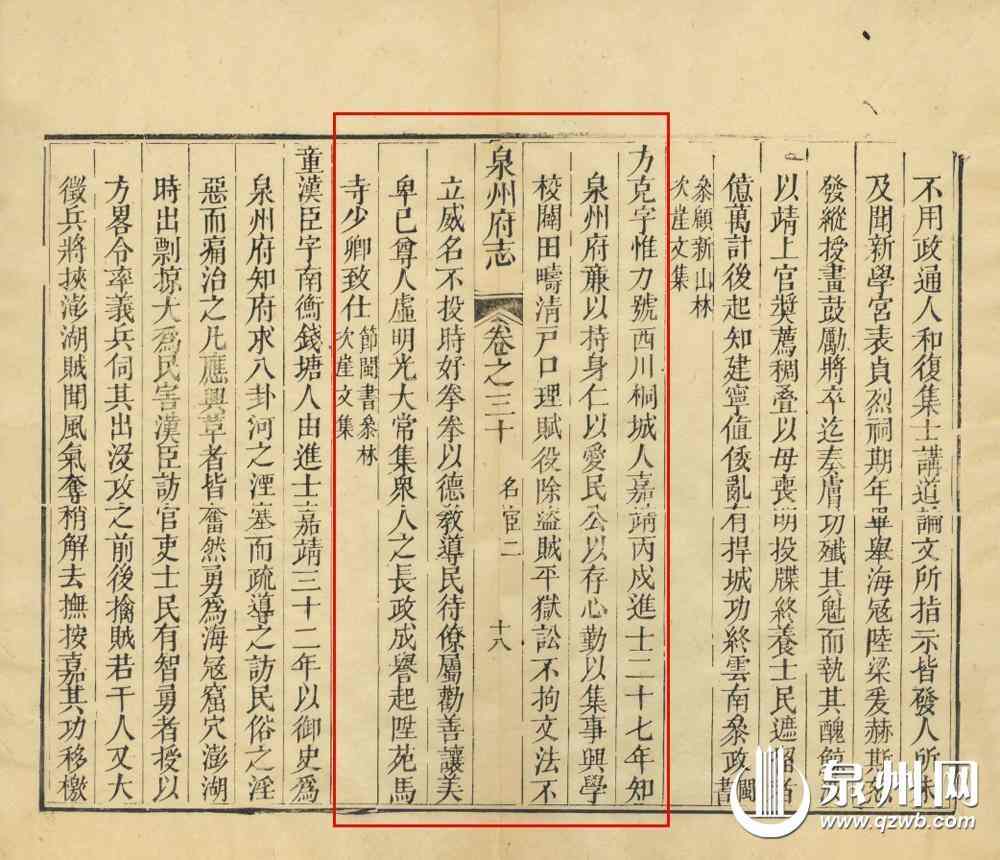 不用政通人和復集士講道論文所指示皆發人所未
及聞新學宮表貞烈祠期年畢舉海寇陸梁爰赫斯怒
發縱授畫鼓勵將卒迄奏膚功殲其魁而執其醜
以靖上官奬薦稠疊以母喪明投牒終養士民遮留者
億萬計後起知建寧值倭亂有捍城功終雲南叅政閩書
叅顧新山林
次崖文集
方克字惟力號西川桐城人嘉靖丙戌進士二十七年知
泉州府亷以持身仁以愛民公以存心勤以集事興學
校闢田疇清戸口理賦役除盜賊平獄訟不拘文法不
泉州府志 卷之三十 名宦二 十八
立威名不投時好拳拳以德教導民待僚屬勸善讓美
卑已尊人虛明光大常集衆人之長政成譽起陞苑馬
寺少卿致仕 節閩書叅林
次崖文集
童漢臣字南衡錢塘人由進士嘉靖三十二年以御史爲
泉州府知府求八卦河之湮塞而疏導之訪民俗之淫
惡而痛治之凡應興革者皆奮然勇爲海寇窟穴澎湖
時出剽掠大爲民害漢臣訪官吏士民有智勇者授以
方畧令率義兵伺其出没攻之前後擒賊若干人又大
徵兵將挾澎湖賊聞風氣奪稍解去撫按嘉其功移檄
泉州网
www.qzwb.com